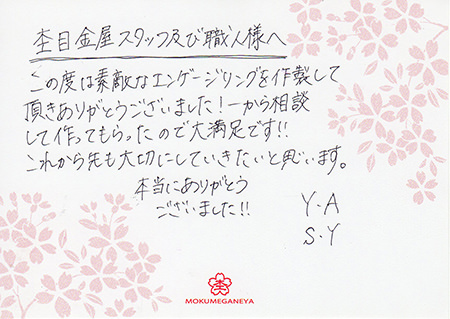 杢目金屋スタッフ及び職人様へ
この度は素敵なエンゲージリングを作製して
頂きありがとうございました！一から相談
して作ってもらったので大満足です!!
これから先も大切にしていきたいと思います。
本当にありがとう
ございました!!
Y・A
S・Y
MOKUMEGANEYA